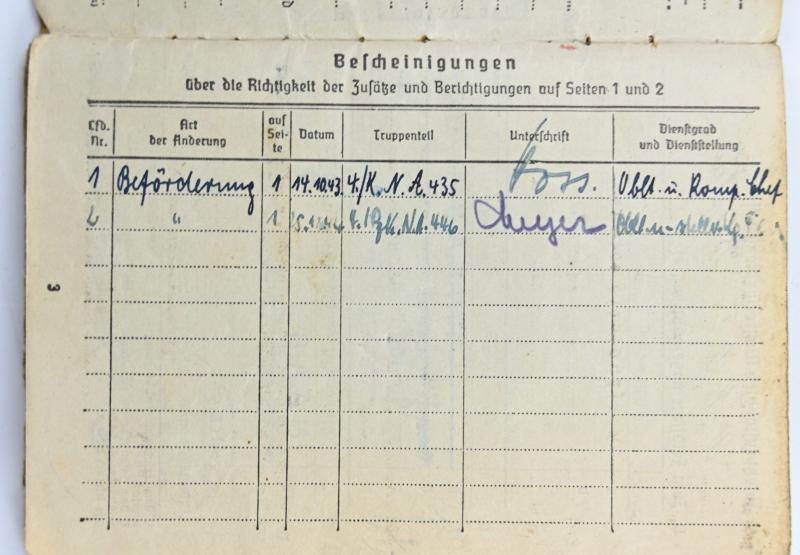 Bescheinigungen
über die Richtigkeit der Zusätze und Berichtigungen auf Seiten 1 und 2
Lfd. Nr. Art der Änderung auf Sei-te Datum Truppenteil Unterschrift Dienstgrad und Dienststellung
1 Beförderung 1 14.10.43 4./K.N.A.435 Voss. Oblt. u. Komp. Chef
2 " 1 4./Pz.K.N.A.446 Meyer
3